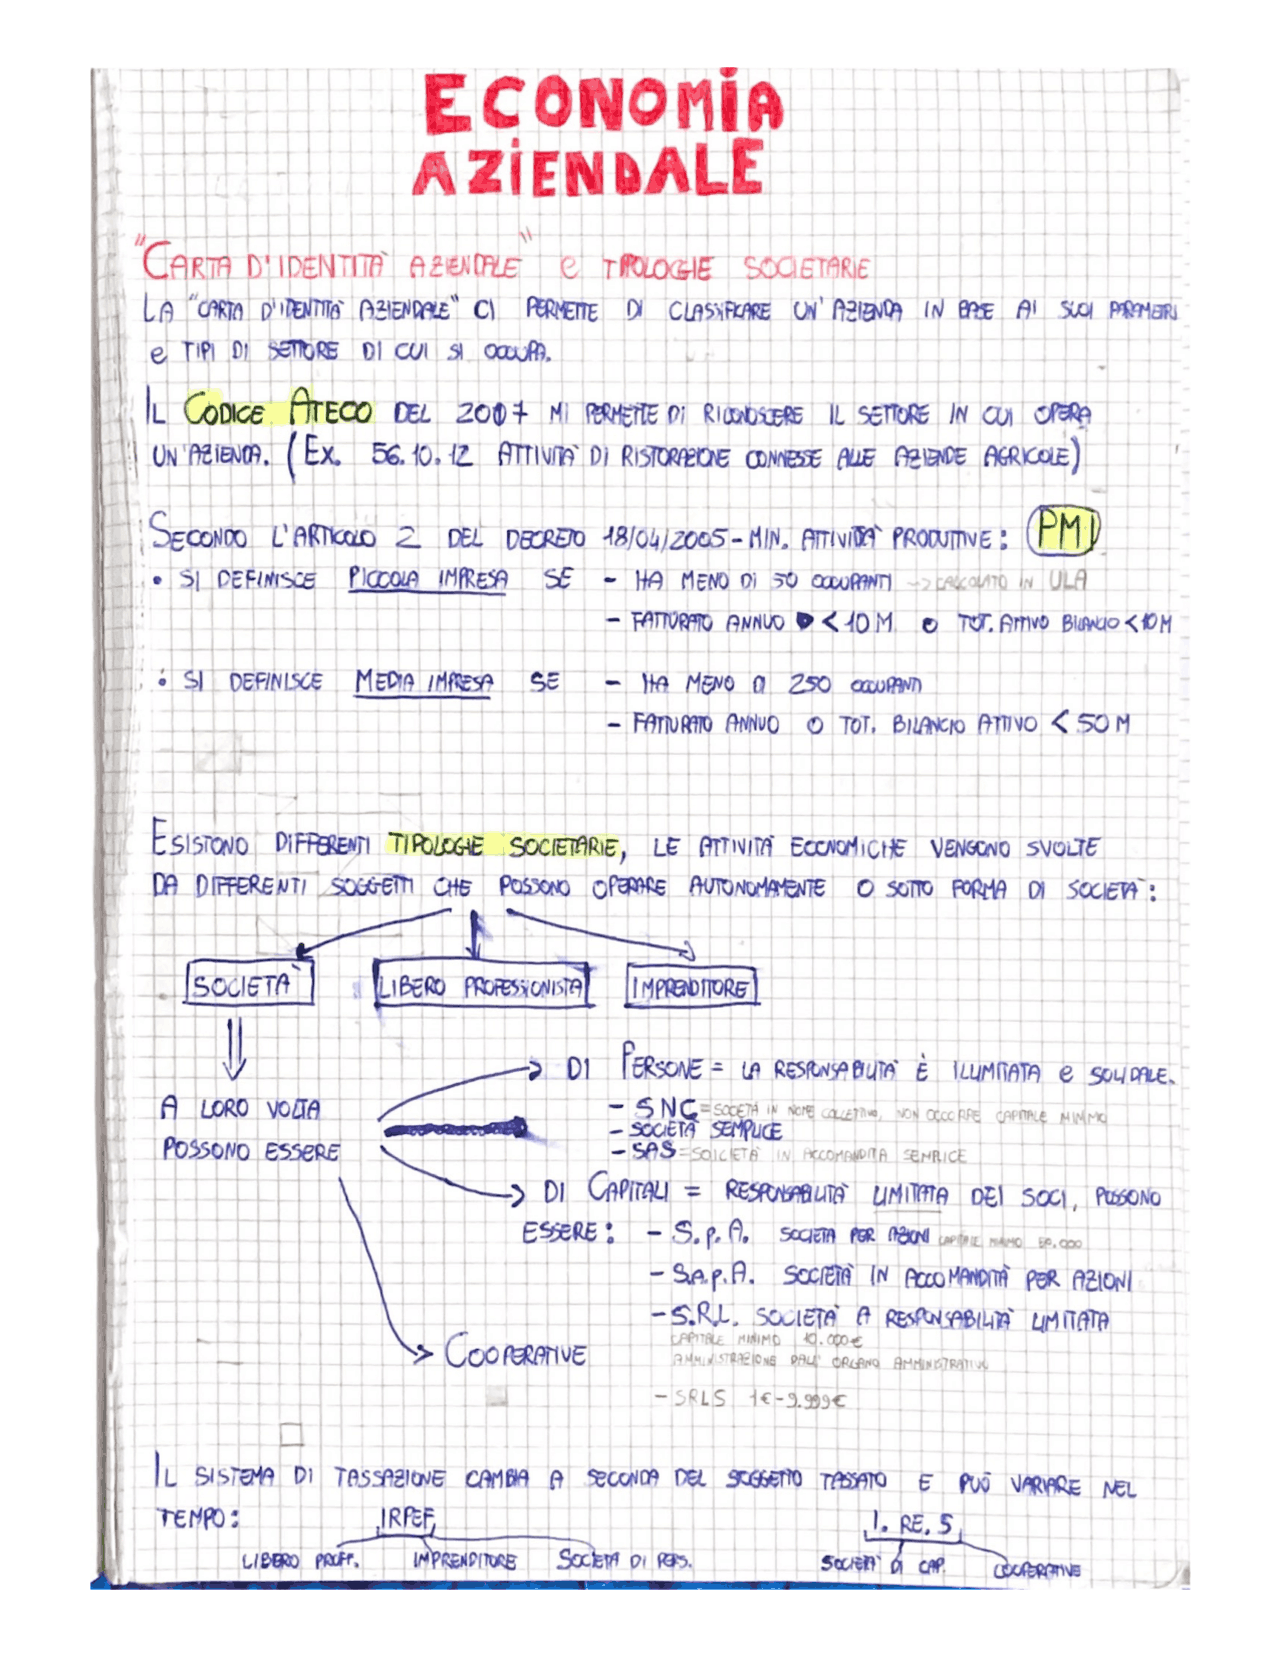 ECONOMIA
AZIENDALE
"CARTA D'IDENTITÀ AZIENDALE" e TIPOLOGIE SOCIETARIE
LA "CARTA D'IDENTITÀ AZIENDALE" CI PERMETTE DI CLASSIFICARE UN'AZIENDA IN BASE AI SUOI PARAMETRI
e TIPI DI SETTORE DI CUI SI OCCUPA.
IL CODICE ATECO DEL 2007 MI PERMETTE DI RICONOSCERE IL SETTORE IN CUI OPERA
UN'AZIENDA. (EX. 56.10.12 ATTIVITÀ DI RISTORAZIONE CONNESSE ALLE AZIENDE AGRICOLE)
SECONDO L'ARTICOLO 2 DEL DECRETO 18/04/2005-MIN. ATTIVITÀ PRODUTTIVE: PMI
• SI DEFINISCE PICCOLA IMPRESA SE - HA MENO DI 50 OCCUPANTI --> CALCOLATO IN ULA
- FATTURATO ANNUO < 10 M O TOT. ATTIVO BILANCIO < 10 M
• SI DEFINISCE MEDIA IMPRESA SE - HA MENO DI 250 OCCUPANTI
- FATTURATO ANNUO O TOT. BILANCIO ATTIVO < 50 M
ESISTONO DIFFERENTI TIPOLOGIE SOCIETARIE, LE ATTIVITÀ ECONOMICHE VENGONO SVOLTE
DA DIFFERENTI SOGGETTI CHE POSSONO OPERARE AUTONOMAMENTE O SOTTO FORMA DI SOCIETÀ:
SOCIETÀ LIBERO PROFESSIONISTA IMPRENDITORE
DI PERSONE = LA RESPONSABILITÀ È ILLIMITATA e SOLIDALE.
A LORO VOLTA
POSSONO ESSERE
- SNC = SOCIETÀ IN NOME COLLETTIVO, NON OCCORRE CAPITALE MINIMO
- SOCIETÀ SEMPLICE
- SAS = SOICIETÀ IN ACCOMANDITA SEMPLICE
DI CAPITALI = RESPONSABILITÀ LIMITATA DEI SOCI, POSSONO
ESSERE: - S.p.A. SOCIETÀ PER AZIONI CAPITALE MINIMO 50.000
- S.A.p.A. SOCIETÀ IN ACCOMANDITÀ PER AZIONI
- S.R.L. SOCIETÀ A RESPONSABILITÀ LIMITATA
CAPITALE MINIMO 10.000€
AMMINISTRAZIONE DALL'ORGANO AMMINISTRATIVO
COOPERATIVE
- SRLS 1€-9.999€
IL SISTEMA DI TASSAZIONE CAMBIA A SECONDA DEL SOGGETTO TASSATO E PUÒ VARIARE NEL
TEMPO: IRPEF I.RE.S
LIBERO PROFF. IMPRENDITORE SOCIETÀ DI PERS. SOCIETÀ DI CAP. COOPERATIVE